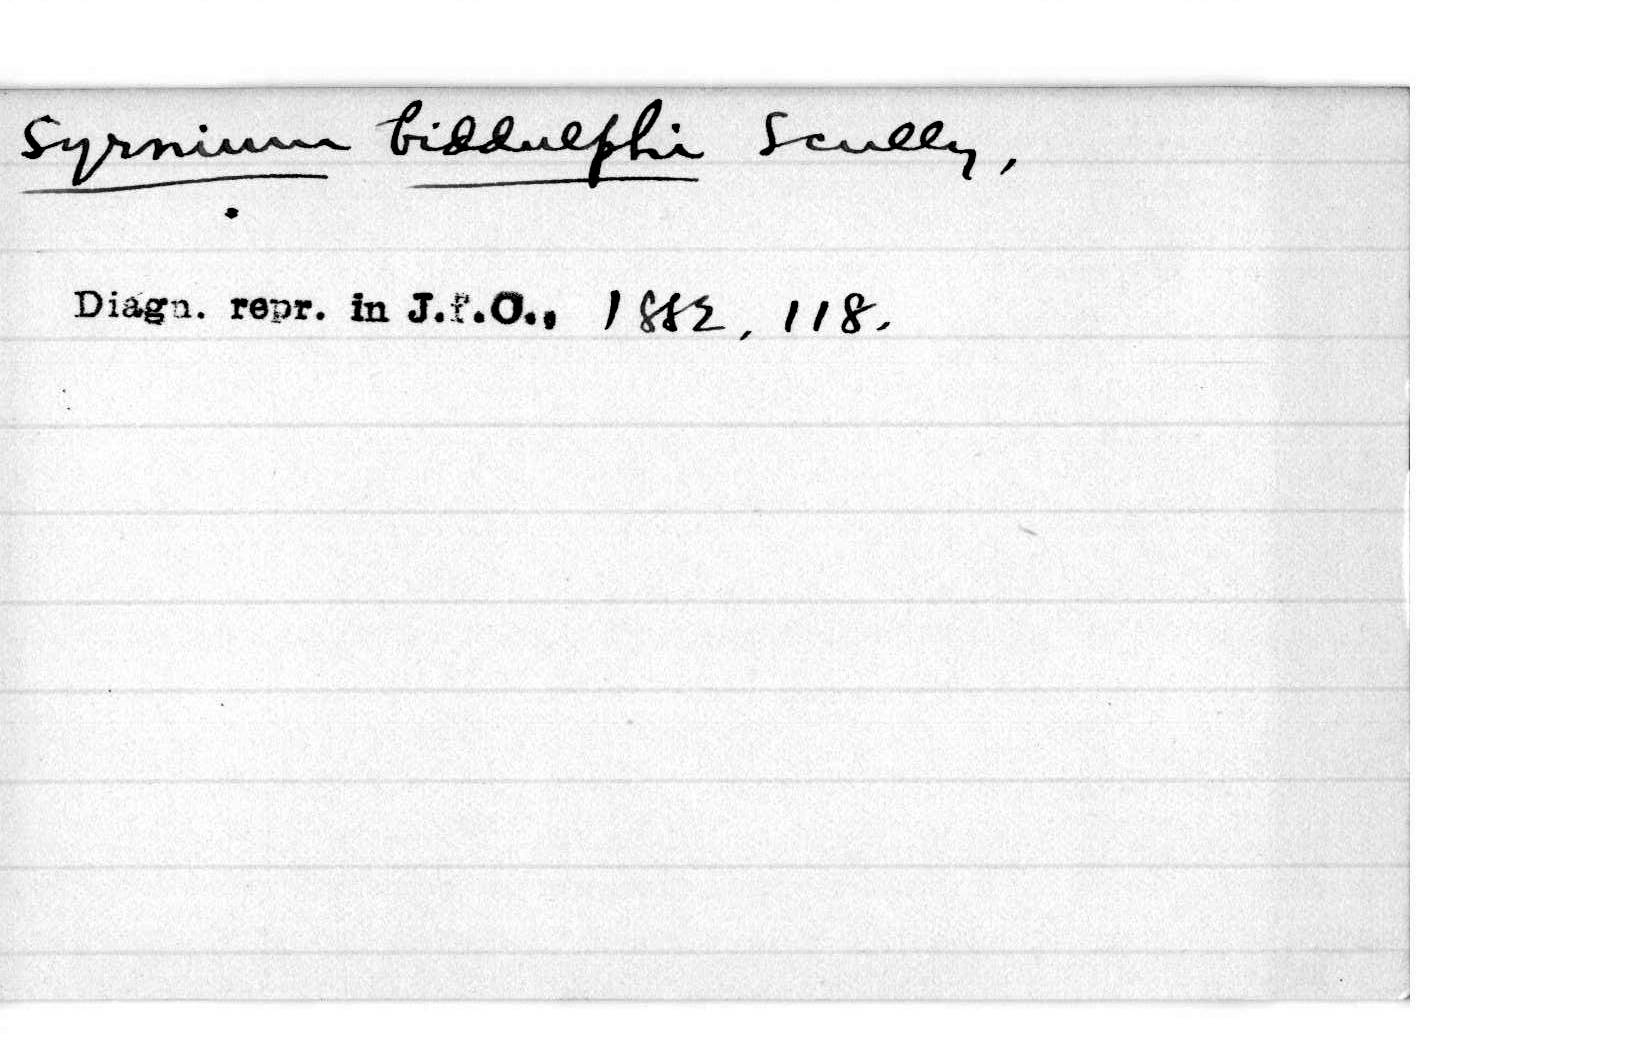 Syrnium biddulphi Scully,
Diagn. repr. in J.f.O., 1882, 118.